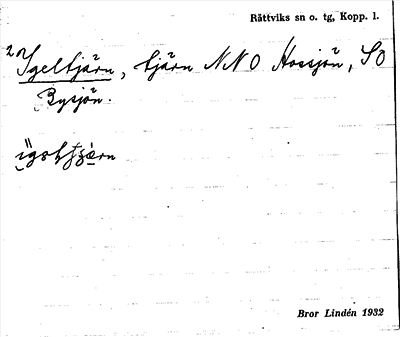 Rättviks sn o. tg, Kopp. l.
2 Igeltjärn, tjärn NNO Hossjön, SO
Bysjön.
Bror Lindén 1932